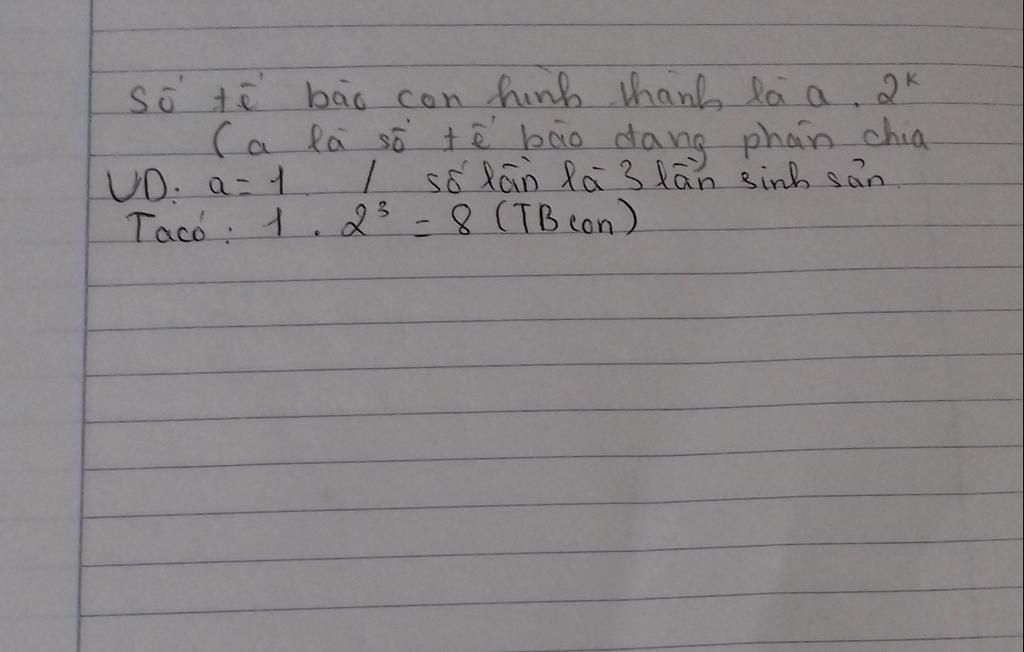 Số tế bào con hình thành là a . 2ᵏ
(a là số tế bào đang phân chia
VD: a = 1 / số lần là 3 lần sinh sản.
Ta có : 1 . 2³ = 8 (TB con)